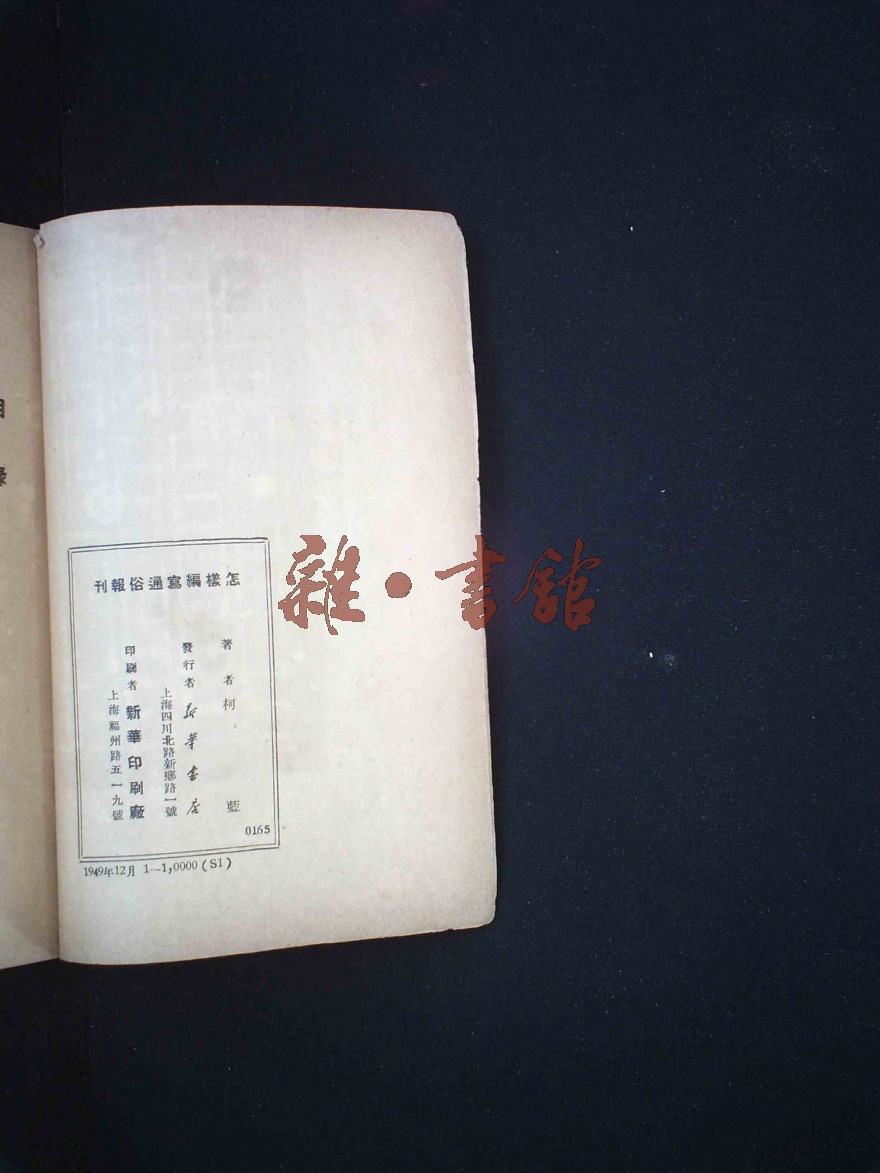 怎樣編寫通俗報刊
著者 柯藍
發行者 新華書店
上海四川北路新鄉路一號
印刷者 新華印刷廠
上海福州路五一九號
0165
1949年12月 1—1,0000 (S1)
雜·書館